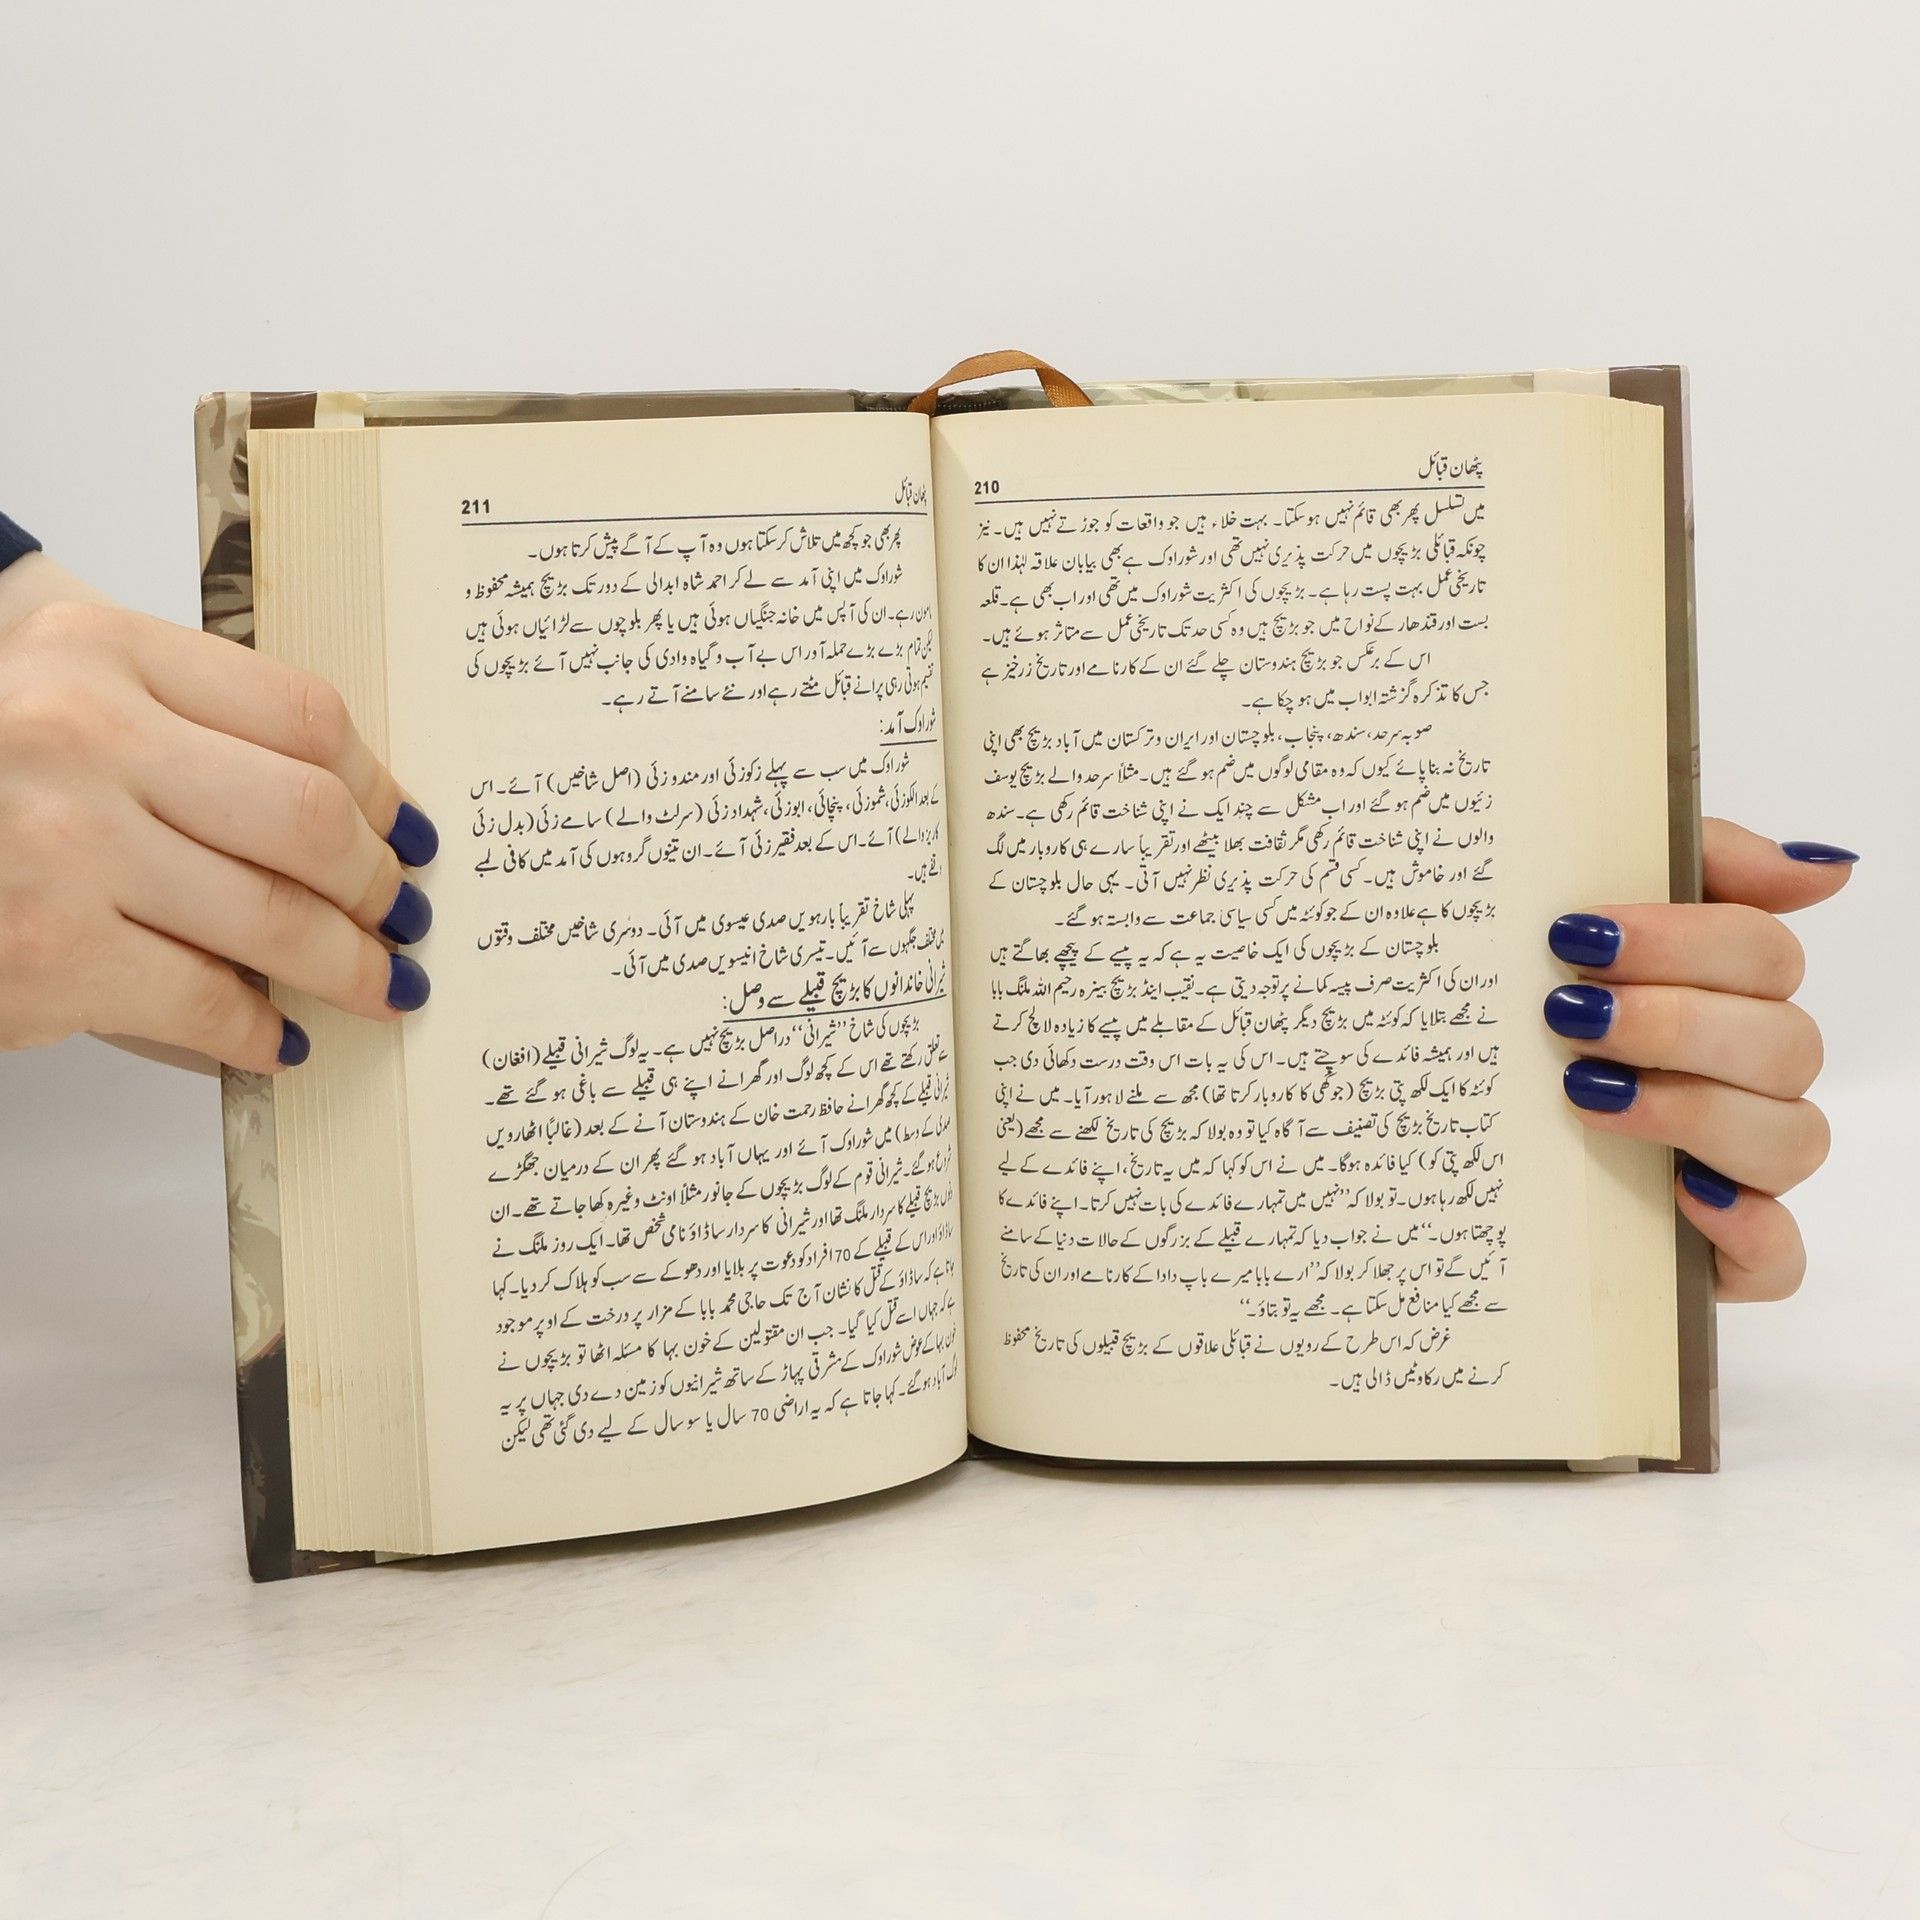 پٹھان قبائل
210
میں تسلسل پھر بھی قائم نہیں ہو سکتا۔ بہت خلاء ہیں جو واقعات کو جوڑتے نہیں ہیں۔ نیز
چونکہ قبائلی بڑیچوں میں حرکت پذیری نہیں تھی اور شوراوک ہے بھی بیابان علاقہ لہٰذا ان کا
تاریخی عمل بہت پست رہا ہے۔ بڑیچوں کی اکثریت شوراوک میں تھی اور اب بھی ہے۔ قلعہ
بست اور قندھار کے نواح میں جو بڑیچ ہیں وہ کسی حد تک تاریخی عمل سے متاثر ہوئے ہیں۔
اس کے برعکس جو بڑیچ ہندوستان چلے گئے ان کے کارنامے اور تاریخ زرخیز ہے
جس کا تذکرہ گزشتہ ابواب میں ہو چکا ہے۔
صوبہ سرحد، سندھ، پنجاب، بلوچستان اور ایران و ترکستان میں آباد بڑیچ بھی اپنی
تاریخ نہ بنا پائے کیوں کہ وہ مقامی لوگوں میں ضم ہو گئے ہیں۔ مثلاً سرحد والے بڑیچ یوسف
زئیوں میں ضم ہو گئے اور اب مشکل سے چند ایک نے اپنی شناخت قائم رکھی ہے۔ سندھ
والوں نے اپنی شناخت قائم رکھی مگر ثقافت بھلا بیٹھے اور تقریباً سارے ہی کاروبار میں لگ
گئے اور خاموش ہیں۔ کسی قسم کی حرکت پذیری نظر نہیں آتی۔ یہی حال بلوچستان کے
بڑیچوں کا ہے علاوہ ان کے جو کوئٹہ میں کسی سیاسی جماعت سے وابستہ ہو گئے۔
بلوچستان کے بڑیچوں کی ایک خاصیت یہ ہے کہ یہ پیسے کے پیچھے بھاگتے ہیں
اور ان کی اکثریت صرف پیسہ کمانے پر توجہ دیتی ہے۔ نقیب اینڈ بڑیچ بینرہ رحیم اللہ ملنگ بابا
نے مجھے بتلایا کہ کوئٹہ میں بڑیچ دیگر پٹھان قبائل کے مقابلے میں پیسے کا زیادہ لالچ کرتے
ہیں اور ہمیشہ فائدے کی سوچتے ہیں۔ اس کی یہ بات اس وقت درست دکھائی دی جب
کوئٹہ کا ایک لکھ پتی بڑیچ (جو گھی کا کاروبار کرتا تھا) مجھ سے ملنے لاہور آیا۔ میں نے اپنی
کتاب تاریخ بڑیچ کی تصنیف سے آگاہ کیا تو وہ بولا کہ بڑیچ کی تاریخ لکھنے سے مجھے (یعنی
اس لکھ پتی کو) کیا فائدہ ہوگا۔ میں نے اس کو کہا کہ میں یہ تاریخ، اپنے فائدے کے لیے
نہیں لکھ رہا ہوں۔ تو بولا کہ ”نہیں میں تمہارے فائدے کی بات نہیں کرتا۔ اپنے فائدے کا
پوچھتا ہوں۔“ میں نے جواب دیا کہ تمہارے قبیلے کے بزرگوں کے حالات دنیا کے سامنے
آئیں گے تو اس پر جھلا کر بولا کہ ”ارے بابا میرے باپ دادا کے کارنامے اور ان کی تاریخ
سے مجھے کیا منافع مل سکتا ہے۔ مجھے یہ تو بتاؤ۔“
غرض کہ اس طرح کے رویوں نے قبائلی علاقوں کے بڑیچ قبیلوں کی تاریخ محفوظ
کرنے میں رکاوٹیں ڈالی ہیں۔
پٹھان قبائل
211
پھر بھی جو کچھ میں تلاش کر سکتا ہوں وہ آپ کے آگے پیش کرتا ہوں۔
شوراوک میں اپنی آمد سے لے کر احمد شاہ ابدالی کے دور تک بڑیچ ہمیشہ محفوظ و
مامون رہے۔ ان کی آپس میں خانہ جنگیاں ہوئی ہیں یا پھر بلوچوں سے لڑائیاں ہوئی ہیں
لیکن تمام بڑے بڑے حملہ آور اس بے آب و گیاہ وادی کی جانب نہیں آئے بڑیچوں کی
تقسیم ہوتی رہی پرانے قبائل مٹتے رہے اور نئے سامنے آتے رہے۔
شوراوک آمد:
شوراوک میں سب سے پہلے زکوزئی اور مندوزئی (اصل شاخیں) آئے۔ اس
کے بعد الکوزئی، شموزئی، پنچائی، ابوزئی، شہدادزئی (سرلٹ والے) سامے زئی (بدل زئی
کاریز والے) آئے۔ اس کے بعد فقیر زئی آئے۔ ان تینوں گروہوں کی آمد میں کافی لمبے
وقفے ہیں۔
پہلی شاخ تقریباً بارہویں صدی عیسوی میں آئی۔ دوسری شاخیں مختلف وقتوں
مختلف جگہوں سے آئیں۔ تیسری شاخ انیسویں صدی میں آئی۔
شیرانی خاندانوں کا بڑیچ قبیلے سے وصل:
بڑیچوں کی شاخ ”شیرانی“ دراصل بڑیچ نہیں ہے۔ یہ لوگ شیرانی قبیلے (افغان)
سے تعلق رکھتے تھے اس کے کچھ لوگ اور گھرانے اپنے ہی قبیلے سے باغی ہو گئے تھے۔
شیرانی قبیلے کے کچھ گھرانے حافظ رحمت خان کے ہندوستان آنے کے بعد (غالباً اٹھارویں
صدی کے وسط) میں شوراوک آئے اور یہاں آباد ہو گئے پھر ان کے درمیان جھگڑے
شروع ہو گئے۔ شیرانی قوم کے لوگ بڑیچوں کے جانور مثلاً اونٹ وغیرہ کھا جاتے تھے۔ ان
دنوں بڑیچ قبیلے کا سردار ملنگ تھا اور شیرانی کا سردار ساڈاؤ نامی شخص تھا۔ ایک روز ملنگ نے
ساڈاؤ اور اس کے قبیلے کے 70 افراد کو دعوت پر بلایا اور دھوکے سے سب کو ہلاک کر دیا۔ کہا
جاتا ہے کہ ساڈاؤ کے قتل کا نشان آج تک حاجی محمد بابا کے مزار پر درخت کے اوپر موجود
ہے کہ جہاں اسے قتل کیا گیا۔ جب ان مقتولین کے خون بہا کا مسئلہ اٹھا تو بڑیچوں نے
خون بہا کے عوض شوراوک کے مشرقی پہاڑ کے ساتھ شیرانیوں کو زمین دے دی جہاں پر یہ
لوگ آباد ہو گئے۔ کہا جاتا ہے کہ یہ اراضی 70 سال یا سو سال کے لیے دی گئی تھی لیکن